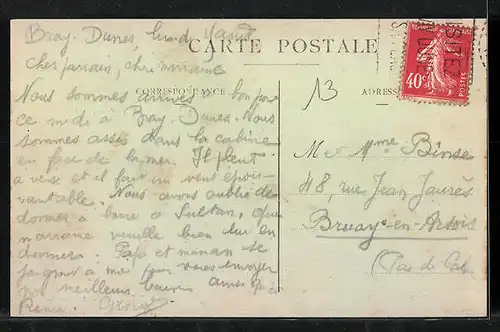 Bray-Dunes, lundi 4 août
CARTE POSTALE
Cher parrain, chère marraine
CORRESPONDANCE
Nous sommes arrivés bon port
ce midi à Bray-Dunes. Nous
sommes assis dans la cabine
en face de la mer. Il pleut
a verse et il fait un vent épou-
vantable. Nous avons oublié de
donner à boire à Sultan, que
marraine veuille bien lui en
donner. Papa et maman se
joignent à moi pour vous envoyer
nos meilleurs baisers ainsi qu'à
Georges
13
ADRESSE
40c
POSTES
M et Mme Binse
48, rue Jean Jaurès
Bruay-en-Artois
(Pas de Cal